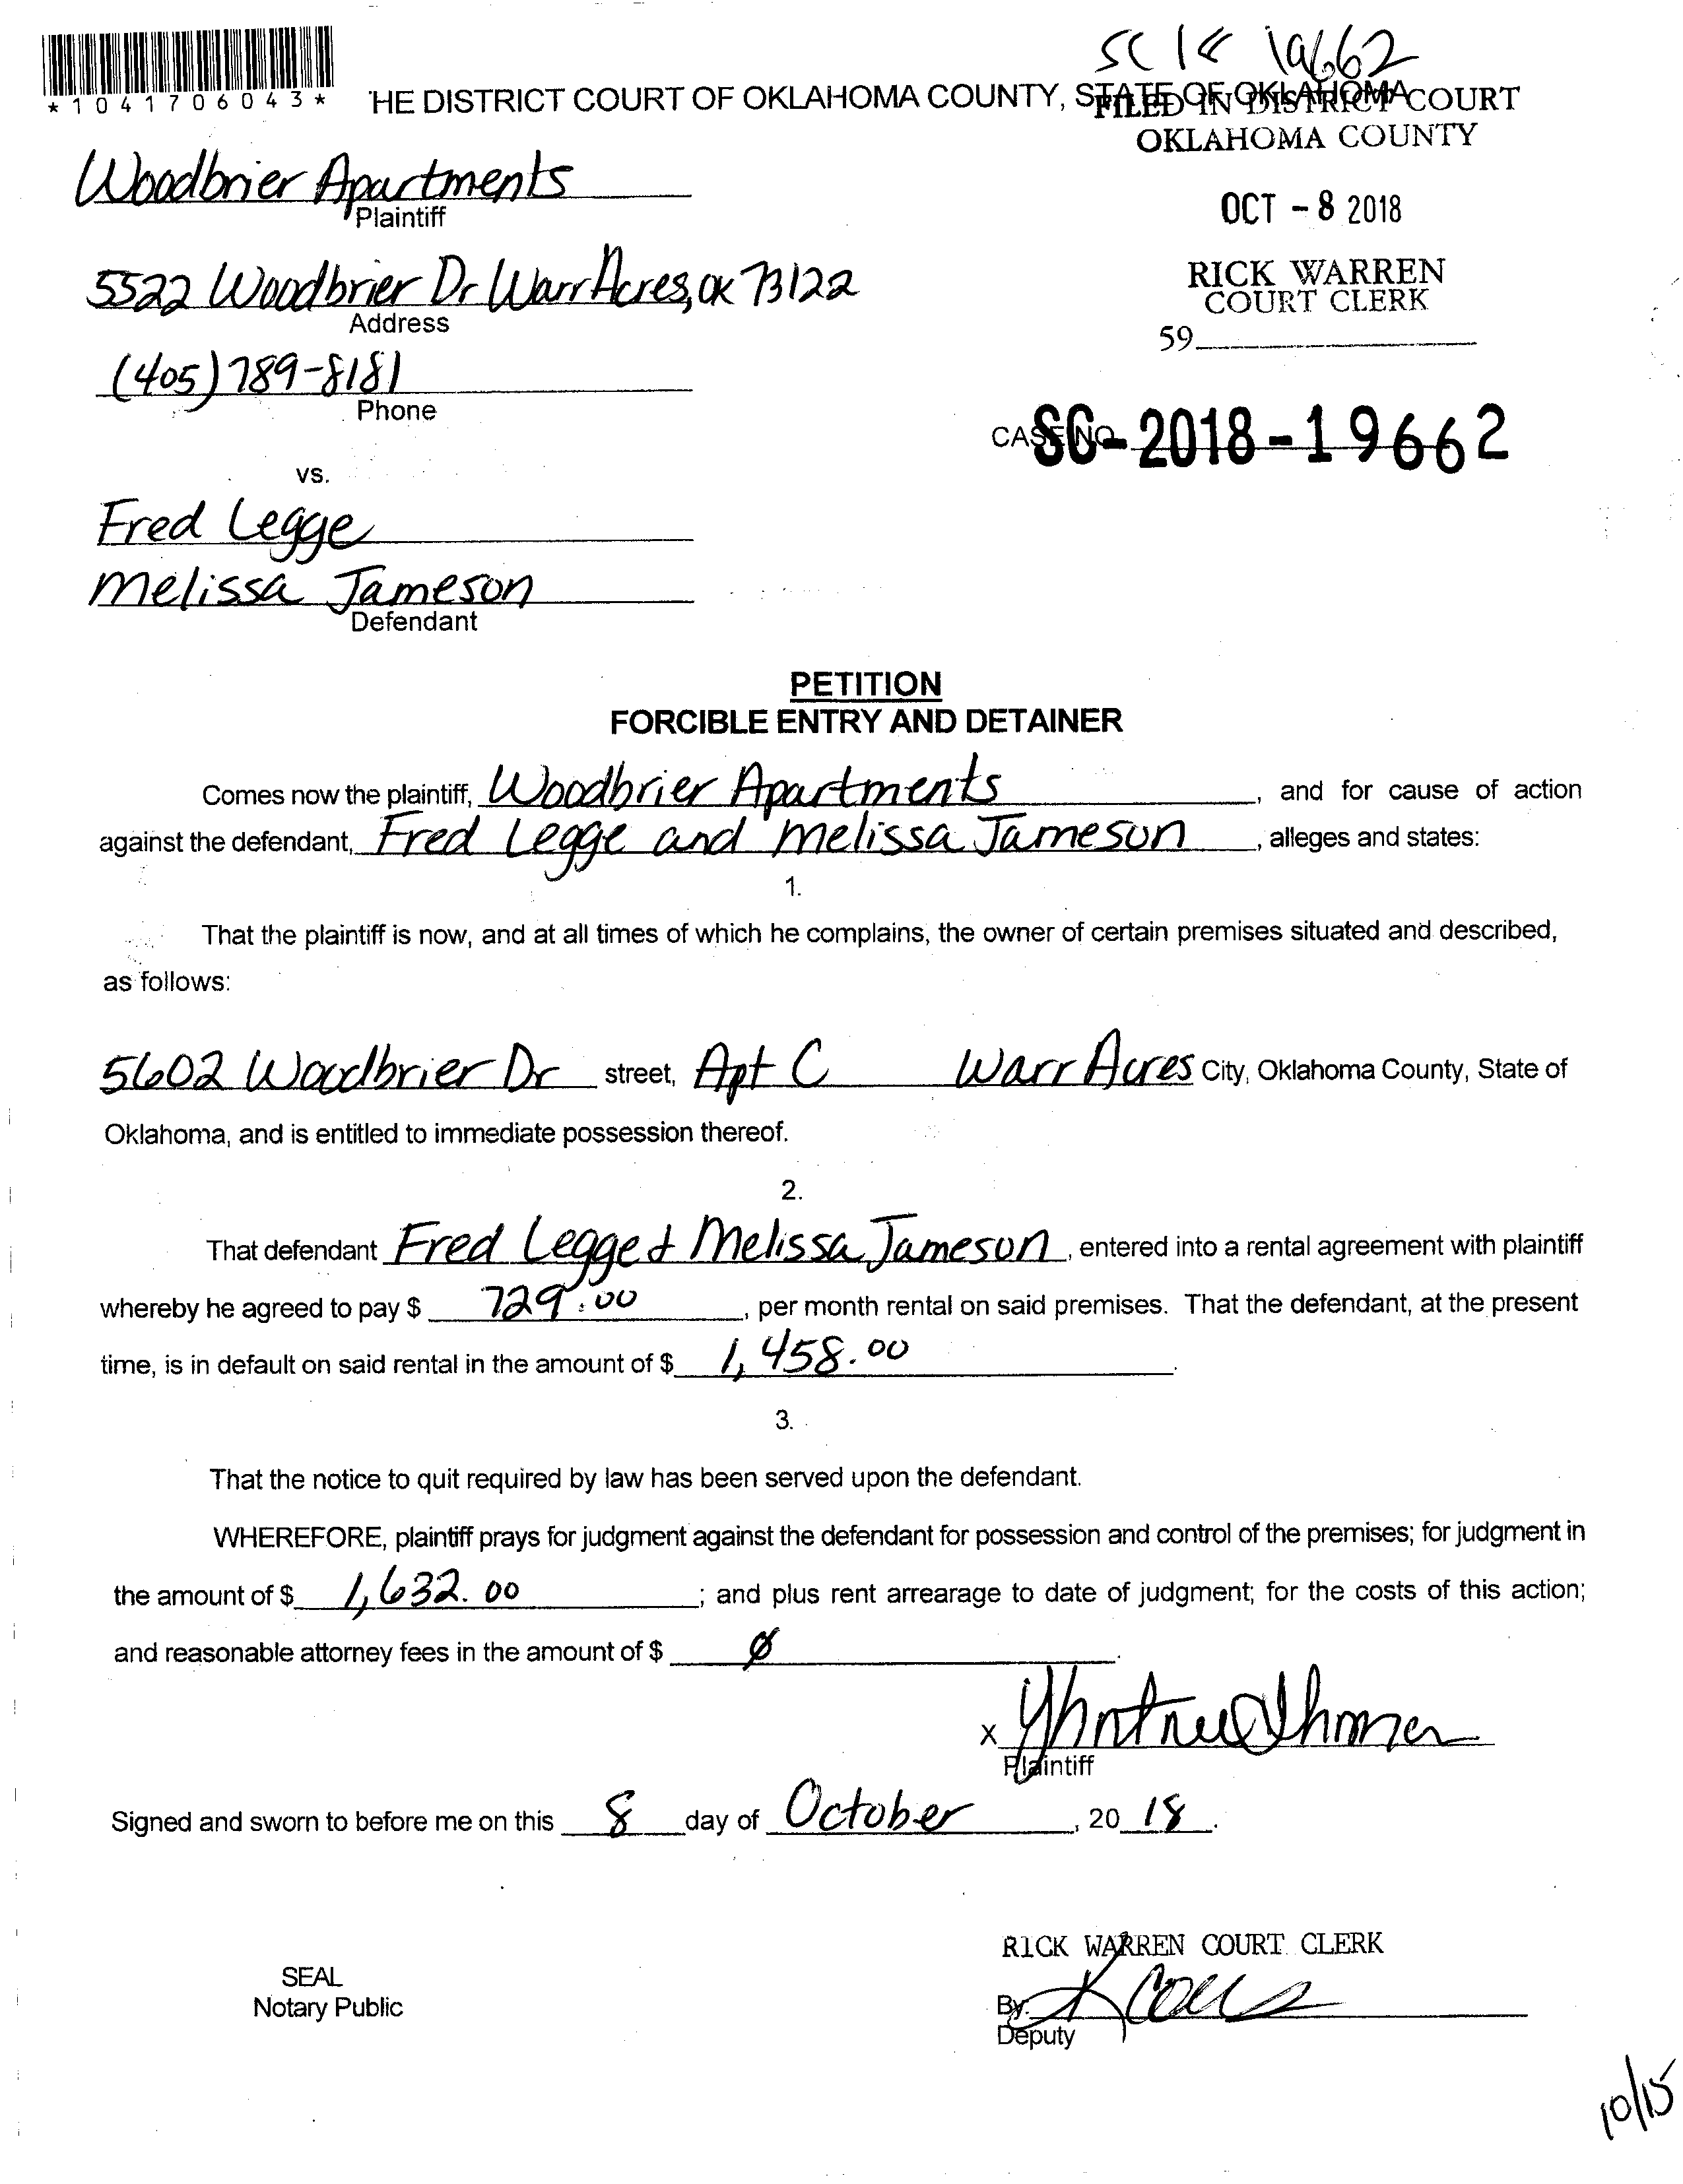 SC 18 19662
*1041706043*
HE DISTRICT COURT OF OKLAHOMA COUNTY, STATE OF OKLAHOMA
FILED IN DISTRICT COURT
OKLAHOMA COUNTY
Woodbrier Apartments
Plaintiff
OCT - 8 2018
5522 Woodbrier Dr Warr Acres, OK 73122
Address
RICK WARREN
COURT CLERK
59
(405) 789-8181
Phone
CASE NO. SC-2018-19662
vs.
Fred Legge
Melissa Jameson
Defendant
PETITION
FORCIBLE ENTRY AND DETAINER
Comes now the plaintiff, Woodbrier Apartments, and for cause of action
against the defendant, Fred Legge and Melissa Jameson, alleges and states:
1.
That the plaintiff is now, and at all times of which he complains, the owner of certain premises situated and described,
as follows:
5602 Woodbrier Dr street, Apt C Warr Acres City, Oklahoma County, State of
Oklahoma, and is entitled to immediate possession thereof.
2.
That defendant Fred Legge & Melissa Jameson, entered into a rental agreement with plaintiff
whereby he agreed to pay $ 729.00, per month rental on said premises. That the defendant, at the present
time, is in default on said rental in the amount of $ 1,458.00.
3.
That the notice to quit required by law has been served upon the defendant.
WHEREFORE, plaintiff prays for judgment against the defendant for possession and control of the premises; for judgment in
the amount of $ 1,632.00; and plus rent arrearage to date of judgment; for the costs of this action;
and reasonable attorney fees in the amount of $ 0.
X
Plaintiff
Signed and sworn to before me on this 8 day of October, 2018.
RICK WARREN COURT CLERK
SEAL
Notary Public
By.
Deputy
10/15